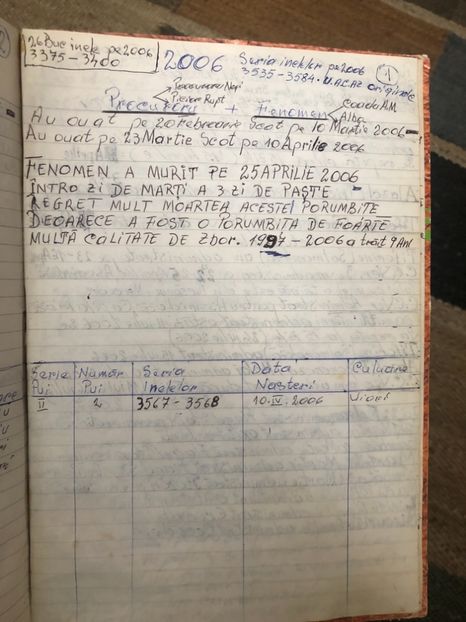 26 Buc inele pe 2006
3375 - 3400
2006
Seria inelelor pe 2006
3535 - 3584. U.A.C.A.Z originele
1
Negri
Picior Rupt
Procurory + Fenomen
Coada A.M
Alba
Au ouat pe 20 Februarie Scot pe 10 Martie 2006
Au ouat pe 23 Martie Scot pe 10 Aprilie 2006
FENOMEN A MURIT PE 25 APRILIE 2006
ÎNTRO ZI DE MARȚI A 3 ZI DE PAȘTE
REGRET MULT MOARTEA ACESTEI PORUMBIȚE
DEOARECE A FOST O PORUMBIȚA DE FOARTE
MULTĂ CALITATE DE Zbor. 1997 - 2006 a trăit 9 Ani
Serie Pui
Număr Pui
Seria Inelelor
Data Nasteri
Culoare
II
2
3567 - 3568
10.IV.2006